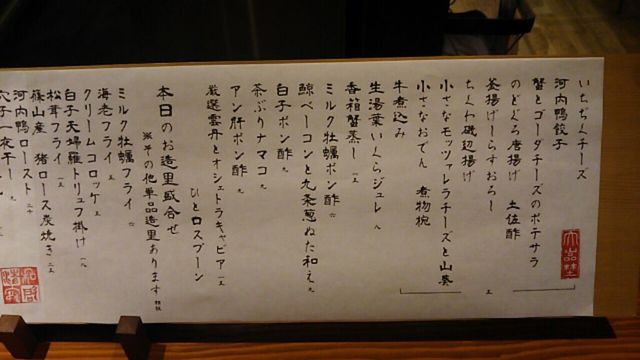 いちぢくチーズ
河内鴨餃子
蟹とゴーダチーズのポテサラ
のどぐろ唐揚げ 土佐酢
釜揚げしらすおろし
ちくわ磯辺揚げ
小さなモッツァレラチーズと山葵
小さなおでん 煮物椀
牛煮込み
生湯葉いくらジュレ 八
香箱蟹蒸し 一五
ミルク牡蠣ポン酢 六
鯨ベーコンと九条葱ぬた和え 九
白子ポン酢 九
茶ぶりナマコ 九
アン肝ポン酢 九
厳選雲丹とオシェトラキャビア 一五
ひと口スプーン
本日のお造里盛合せ
※その他単品造里あります
ミルク牡蠣フライ 六
海老フライ 五
クリームコロッケ 五
白子天婦羅トリュフ掛け 一八
松茸フライ 一五
篠山産 猪ロース炭焼き 二五
河内鴨ロースト 二十
穴子一夜干し